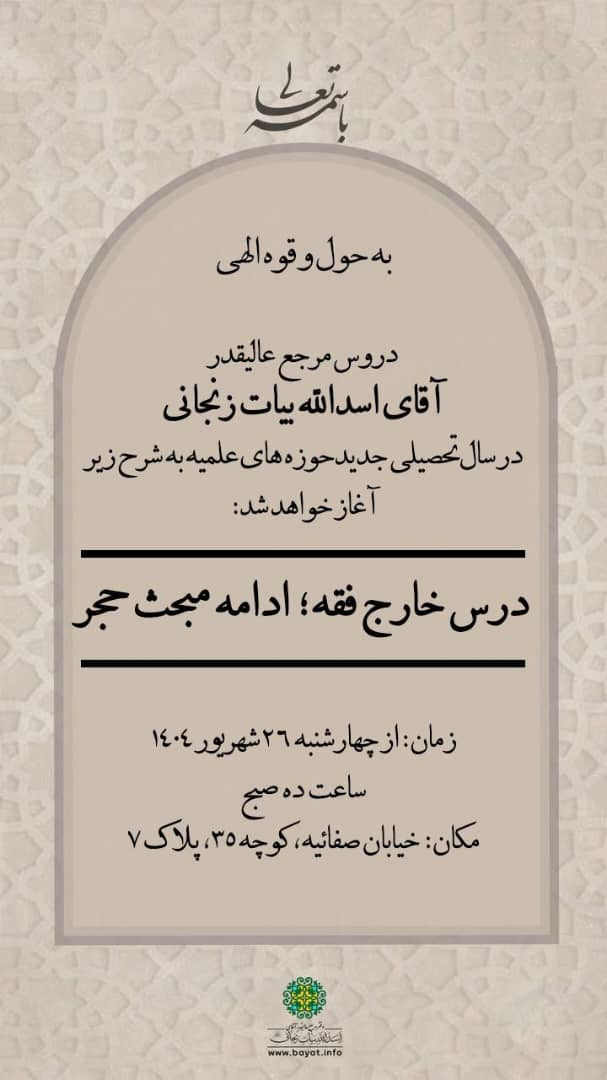 باسمه تعالی
به حول و قوه الهی
دروس مرجع عالیقدر
آقای اسدالله بیات زنجانی
در سال تحصیلی جدید حوزه های علمیه به شرح زیر
آغاز خواهد شد:
درس خارج فقه؛ ادامه مبحث حجر
زمان: از چهارشنبه ۲۶ شهریور ۱۴۰۴
ساعت ده صبح
مکان: خیابان صفائیه، کوچه ۳۵، پلاک ۷
اسدالله بیات زنجانی
www.bayat.info